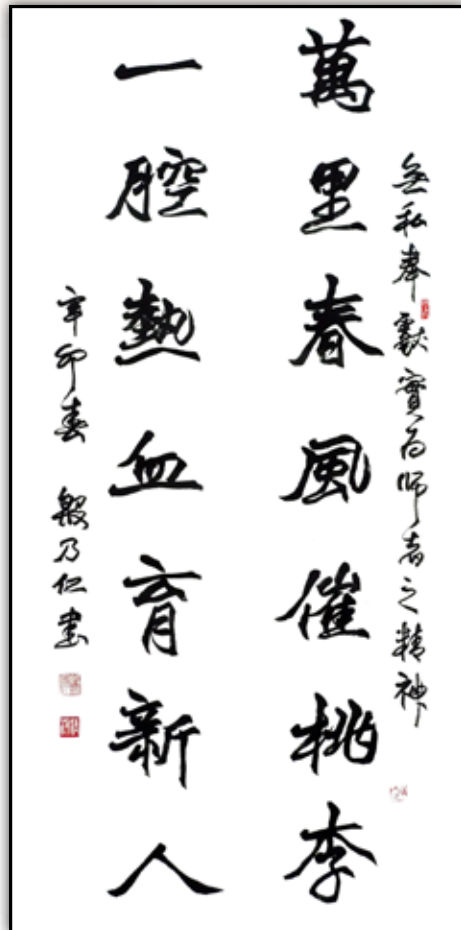 無私奉獻實為師者之精神
萬里春風催桃李
一腔熱血育新人
辛卯春 殷乃仁書